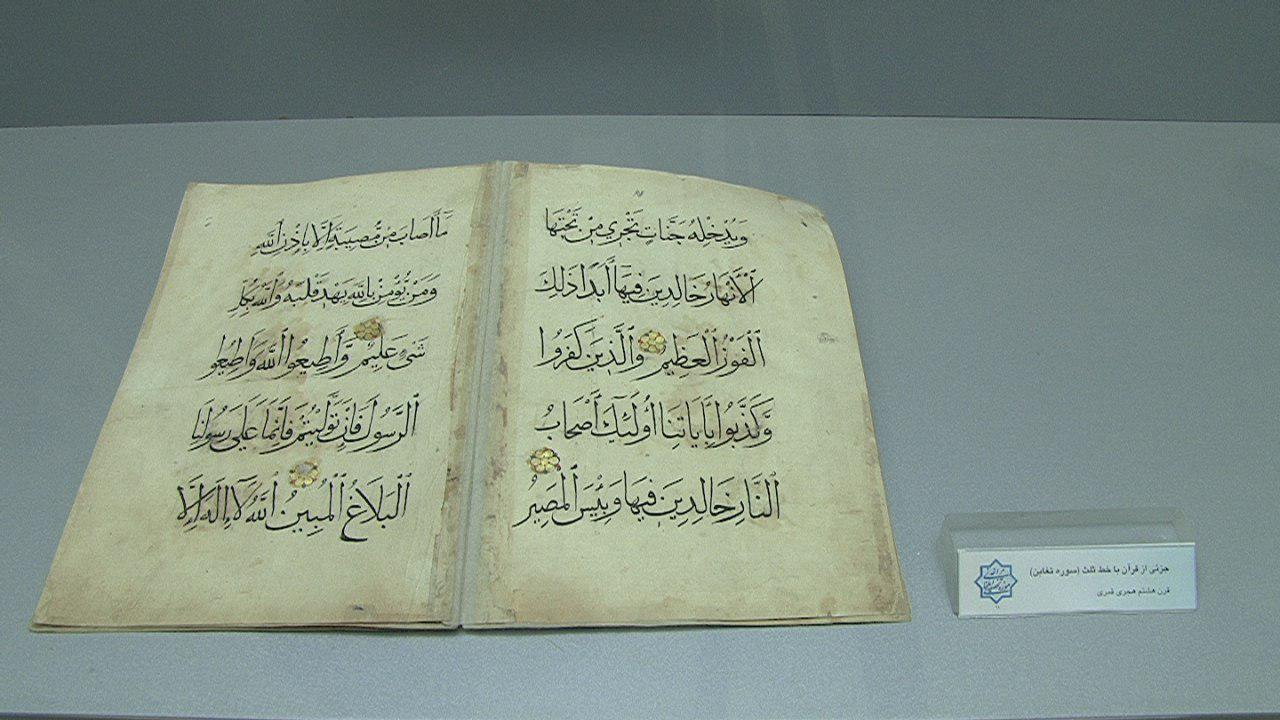 وَيُدْخِلْهُ جَنَّاتٍ تَجْرِي مِنْ تَحْتِهَا
ٱلْأَنْهَارُ خَالِدِينَ فِيهَا أَبَدًا ذَلِكَ
ٱلْفَوْزُ ٱلْعَظِيمُ وَٱلَّذِينَ كَفَرُوا
وَكَذَّبُوا بِآيَاتِنَا أُولَئِكَ أَصْحَابُ
ٱلنَّارِ خَالِدِينَ فِيهَا وَبِئْسَ ٱلْمَصِيرُ
مَا أَصَابَ مِنْ مُصِيبَةٍ إِلَّا بِإِذْنِ ٱللَّهِ
وَمَنْ يُؤْمِنْ بِٱللَّهِ يَهْدِ قَلْبَهُ وَٱللَّهُ بِكُلِّ
شَيْءٍ عَلِيمٌ وَأَطِيعُوا ٱللَّهَ وَأَطِيعُوا
ٱلرَّسُولَ فَإِنْ تَوَلَّيْتُمْ فَإِنَّمَا عَلَى رَسُولِنَا
ٱلْبَلَاغُ ٱلْمُبِينُ ٱللَّهُ لَا إِلَهَ إِلَّا
جزئی از قرآن با خط ثلث (سوره تغابن)
قرن هشتم هجری قمری